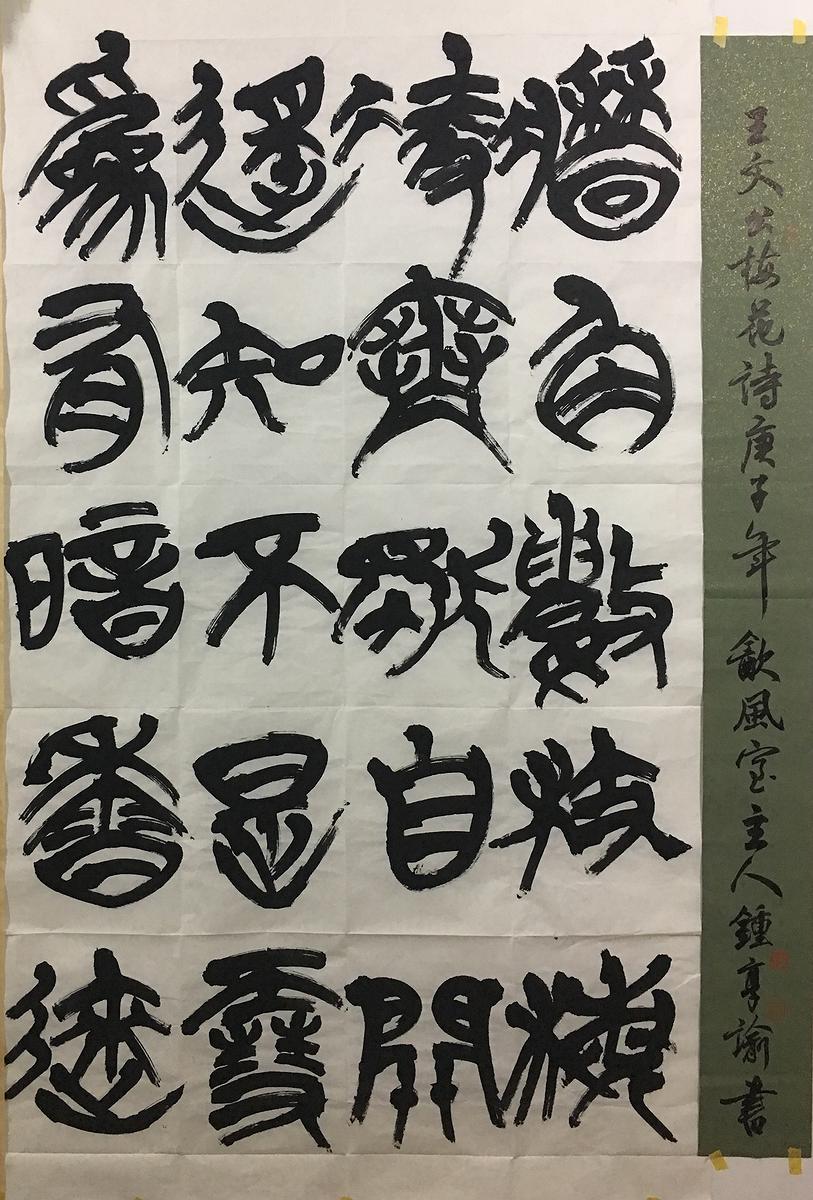 王文公梅花詩庚子年歙風室主人鍾享諭書
牆角數枝梅
凌寒獨自開
遙知不是雪
為有暗香來